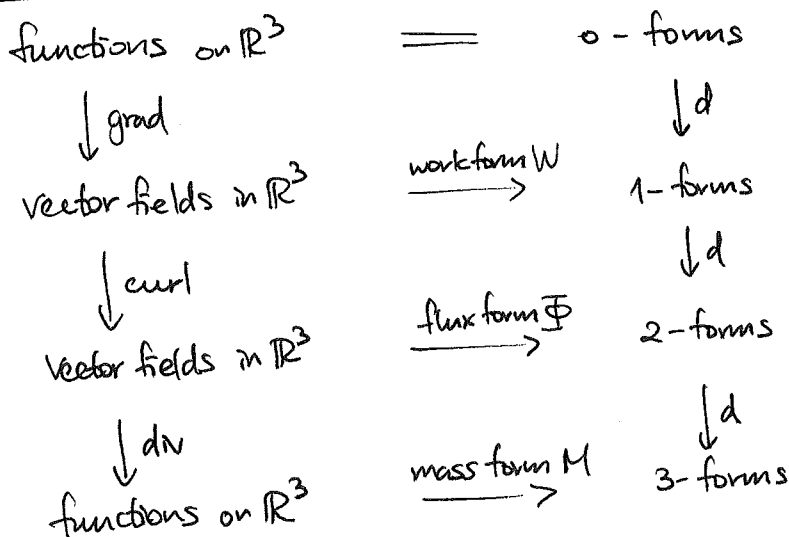 functions on ℝ³ = 0-forms
↓ grad ↓ d
vector fields in ℝ³ work form W → 1-forms
↓ curl ↓ d
vector fields in ℝ³ flux form Φ → 2-forms
↓ div ↓ d
functions on ℝ³ mass form M → 3-forms